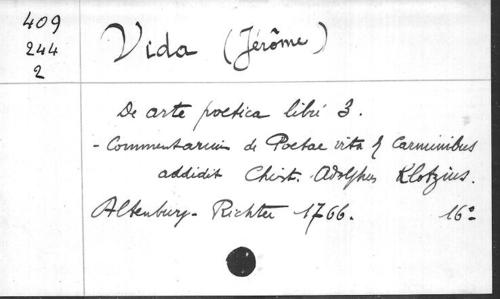 409
244
2
Vida (Jérôme)
De arte poetica libri 3.
- Commentarium de Poetae vita & Carminibus
addidit Christ. Adolphus Klotzius.
Altenburg - Richter 1766. 16°